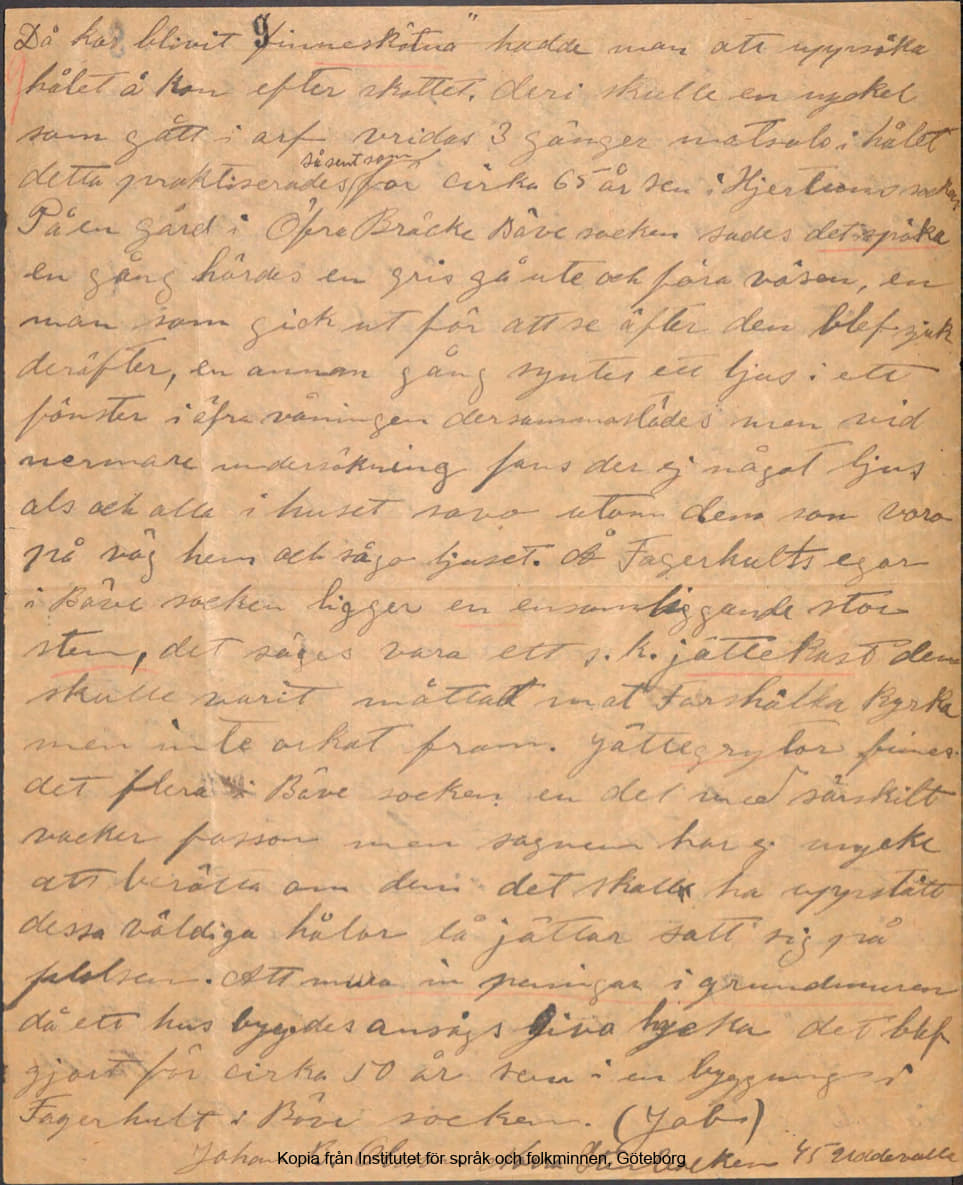 9
Då kor blivit "finneskötna" hadde man att uppsöka
hålet å kon efter skottet. deri skulle en nyckel
som gått i arf vridas 3 gånger motsols i hålet
detta praktiserades så sent som för cirka 65 år sen i Hjertums socken
På en gård i Öfre Bräcke Bäve socken sades det spöka
en gång hördes en gris gå ute och föra väsen, en
man som gick ut för att se äfter den blef sjuk
deräfter, en annan gång syntes ett ljus i ett
fönster i äfra våningen dersammastädes men vid
nermare undersökning fans der ej något ljus
als och alla i huset savo utom dem som voro
på väg hem och sågo ljuset. å Fagerkults egor
i Bäve socken ligger en ensamliggande stor
sten, det säges vara ett s. k. jättekast den
skulle varit måttat mot Forshälla Kyrka
men inte orkat fram. Jättegrytor finnes
det flera i Bäve socken en del med särskilt
vacker fasson men sagnen har ej mycke
att berätta om dem det skall ha uppstått
dessa väldiga hålor då jättar satt sig på
platsen. Att mura in peningar i grundmuren
då ett hus bygdes ansågs giva lycka det blef
gjort för cirka 50 år sen i en byggning i
Fagerhult i Bäve socken. (Job)
Johan 45 Uddevalla
Kopia från Institutet för språk och folkminnen, Göteborg